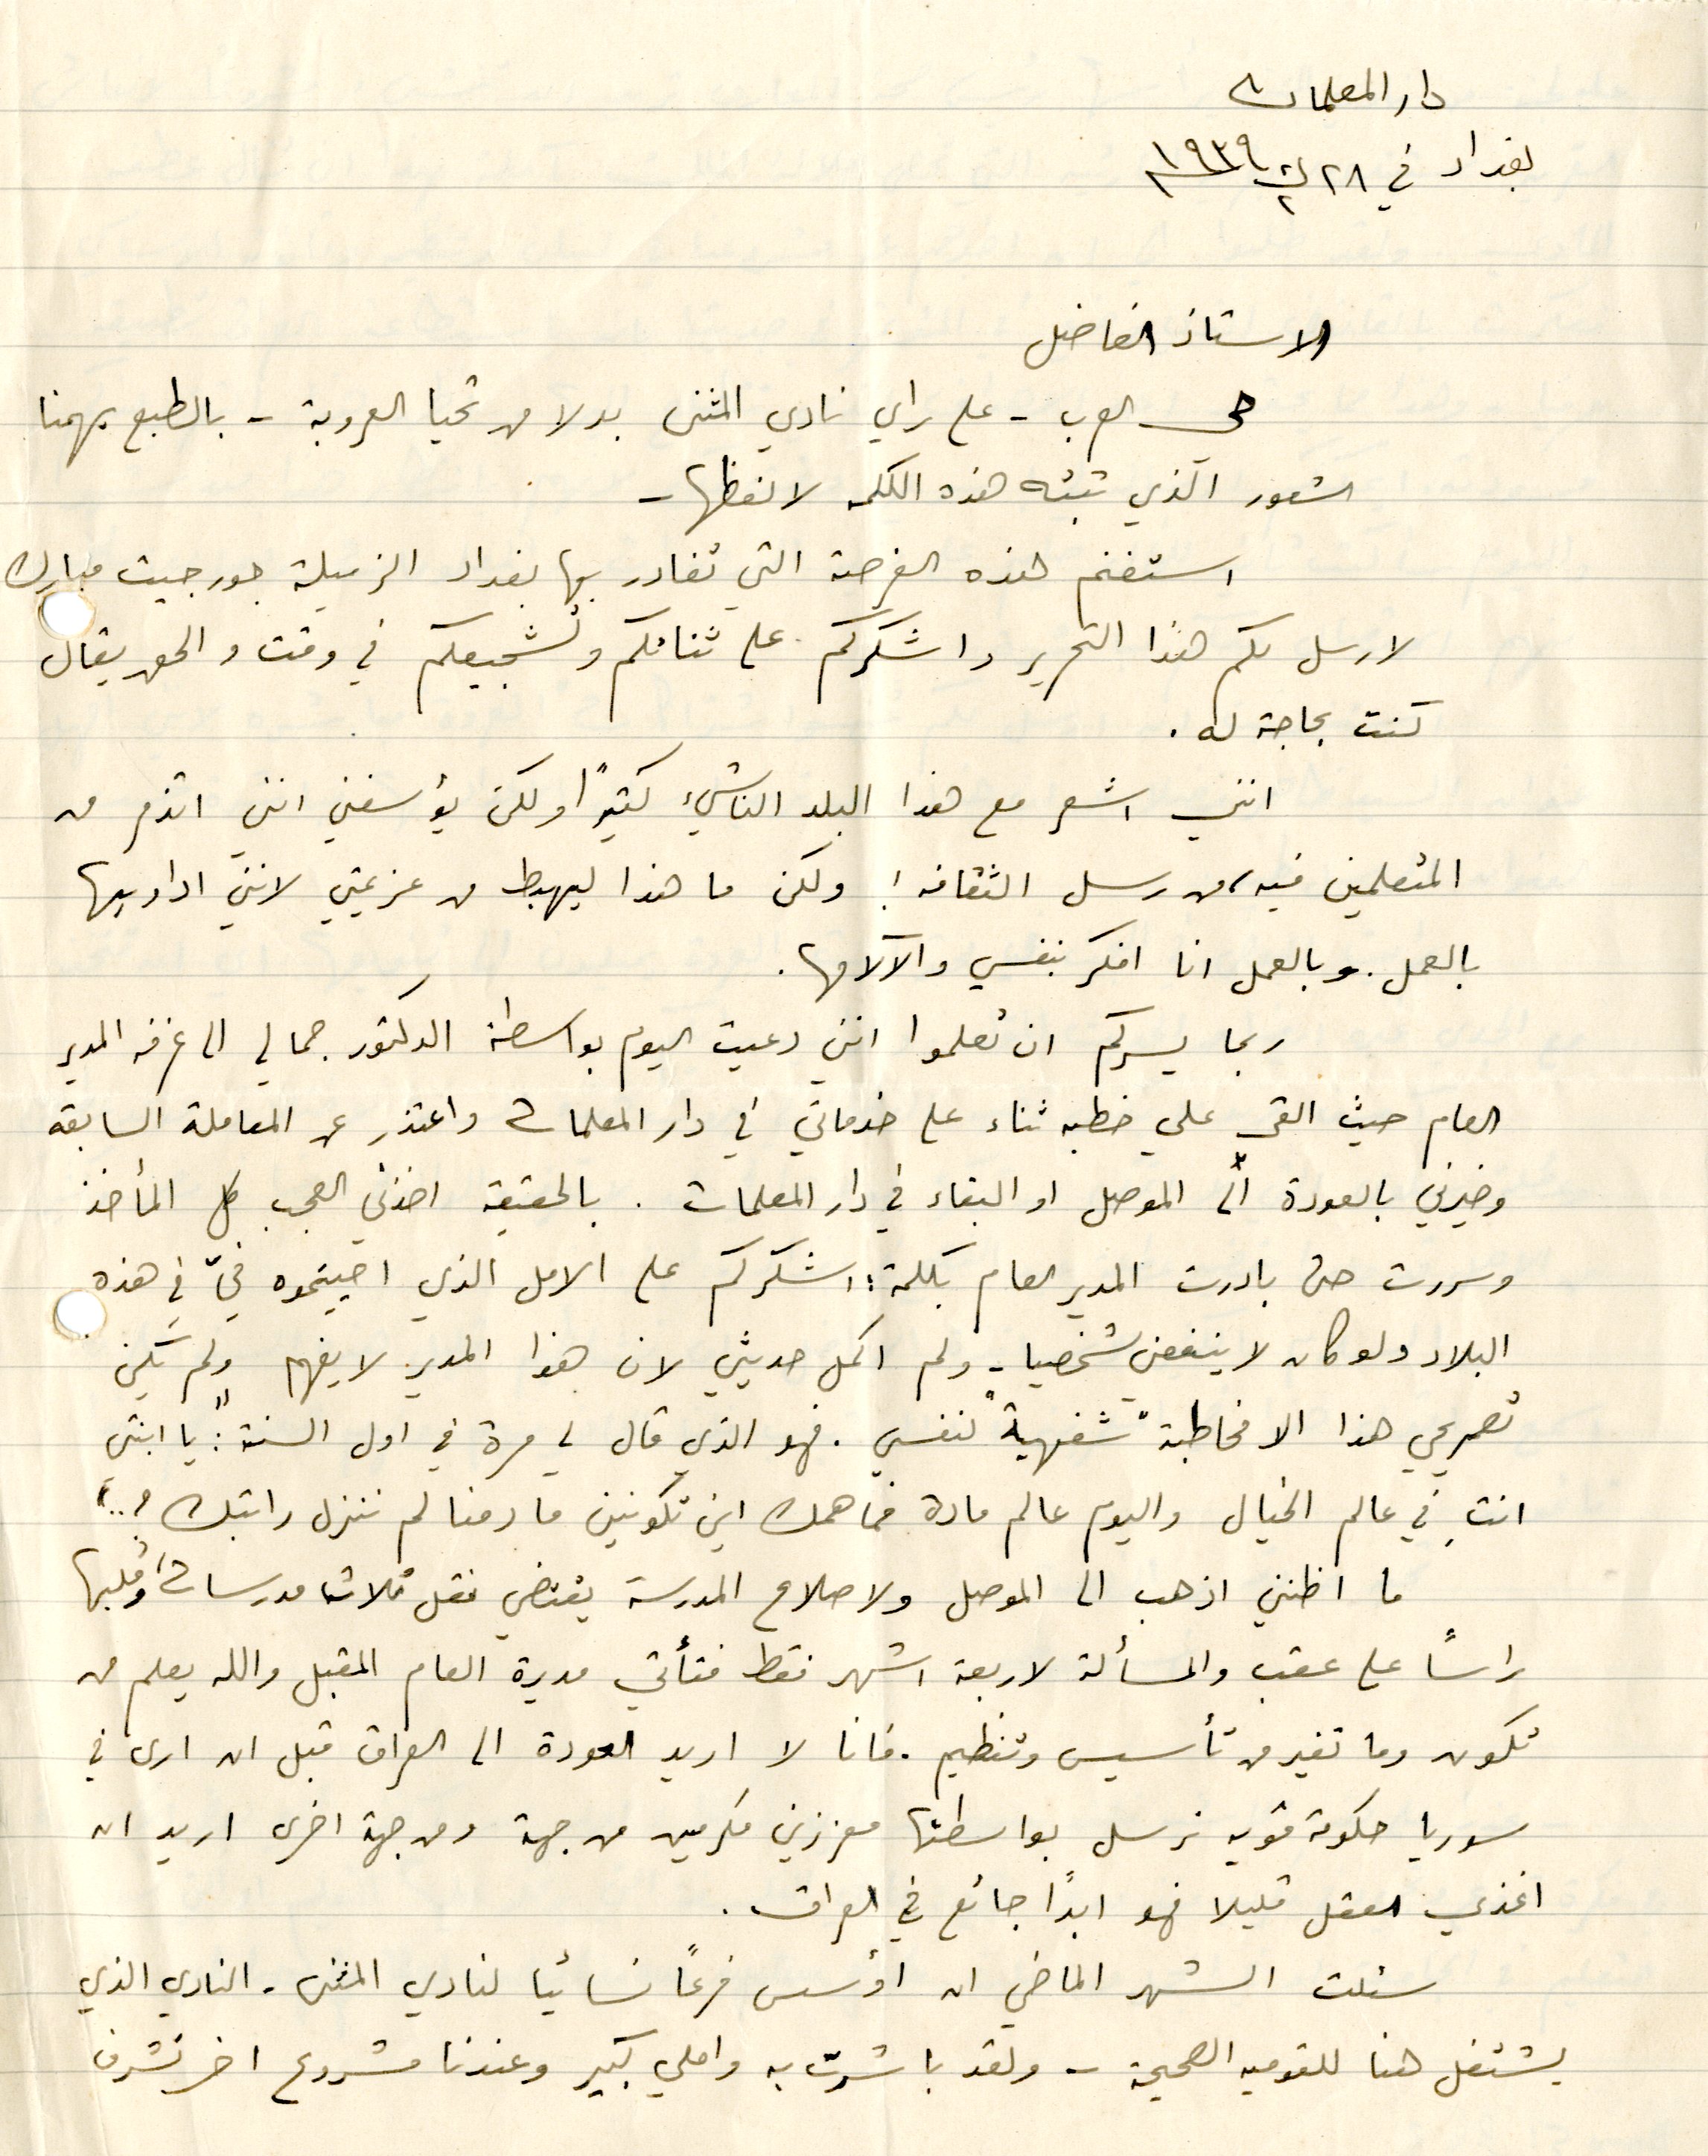 دار المعلمات
بغداد في ٢٨ ك٢ ١٩٣٩
الاستاذ الفاضل
حي العرب - على راي نادي المثنى بدلا من تحيا العروبة - بالطبع يهمنا
الشعور الذي تبثه هذه الكلمه لا لفظها -
استغنم هذه الفرصة التي تغادر بها بغداد الزميلة جورجيت مبارك
لارسل لكم هذا التحرير واشكركم على ثنائكم وتشجيعكم في وقت والحق يقال
كنت بحاجة له .
انني اشعر مع هذا البلد الناشيء كثيرًا ولكن يؤسفني انني اتذمر من
المتعلمين فيه، من رسل الثقافه ! ولكن ما هذا ليهبط من عزيمتي لانني اداويها
بالعمل . وبالعمل انا افكر بنفسي والآلامها .
ربما يسركم ان تعلموا انني دعيت اليوم بواسطة الدكتور جمالي الى غرفه المدير
العام حيث القى علي خطبه ثناء على خدماتي في دار المعلمات واعتذر عن المعاملة السابقه
وخيرني بالعودة الى الموصل او البقاء في دار المعلمات . بالحقيقة اخذني العجب كل المأخذ
وسررت حتى بادرت المدير العام بكلمة : اشكركم على الامل الذي احييتموه فيّ في هذه
البلاد ولو كان لا ينفعني شخصيا - ولم اكمل حديثي لان هذا المدير لا يفهم ولم يكن
تصريحي هذا الا مخاطبة "شفهية" لنفسي . فهو الذي قال لي مرة في اول السنة : "يا ابنتي
انتِ في عالم الخيال واليوم عالم مادة فما همك اين تكونين ما دمنا لم ننزل راتبك ؟.."
ما اظنني اذهب الى الموصل ولاصلاح المدرسة يقتضي نقل ثلاث مدرسات وقلبها
راسًا على عقب والمسألة لاربعة اشهر فقط فتأتي مديرة العام المقبل والله يعلم من
تكون وما تغير من تأسيس وتنظيم . فانا لا اريد العودة الى العراق قبل ان ارى في
سوريا حكومة قويه نرسل بواسطتها معززين مكرمين من جهة ومن جهة اخرى اريد ان
اغذي العقل قليلا فهو ابدًا جائع في العراق .
سئلت الشهر الماضي ان اؤسس فرعًا نسائيا لنادي المثنى - النادي الذي
يشتغل هنا للقوميه الصحيحة - ولقد باشرت به واملي كبير وعندنا مشروع اخر تشرف